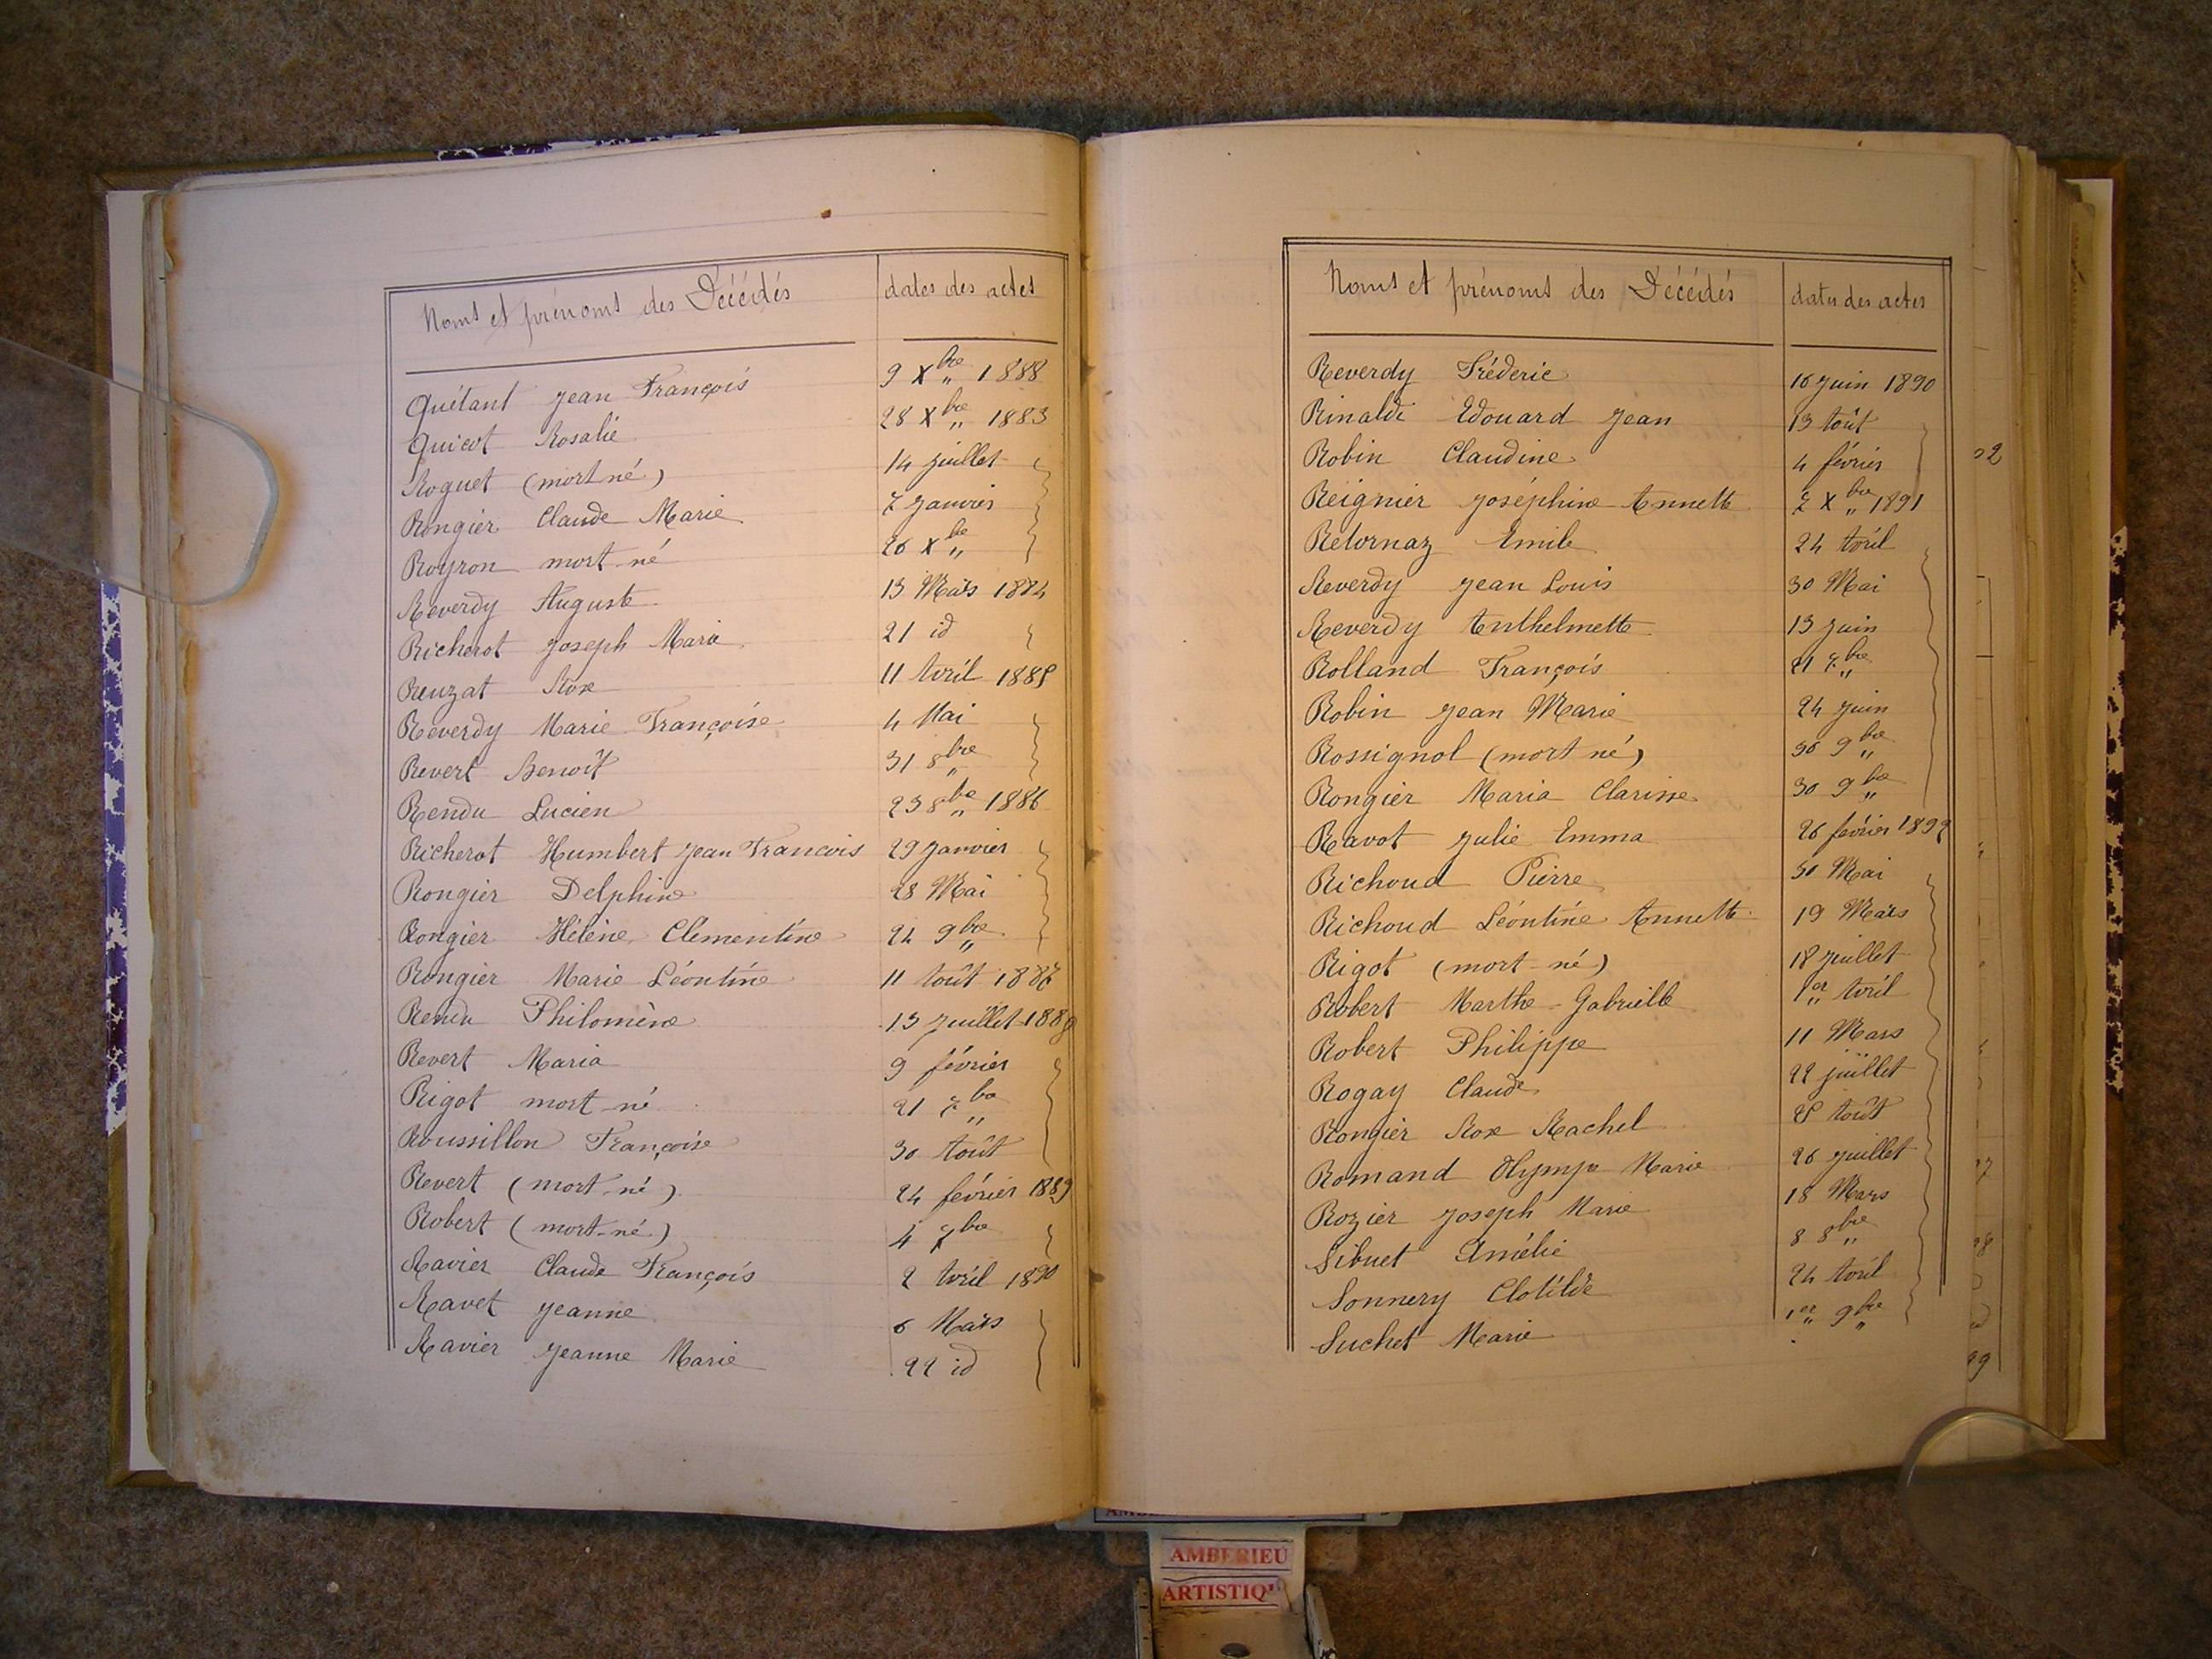 Noms et prénoms des Décédés dates des actes
Quétant Jean François 9 Xbre 1888
Quicot Rosalie 28 Xbre 1883
Roguet (mort né) 14 juillet
Rongier Claude Marie 7 Janvier
Royron mort-né 26 Xbre
Reverdy Auguste 13 Mars 1884
Richerot Joseph Marie 21 id
Reuzat Rose 11 Avril 1885
Reverdy Marie Françoise 4 Mai
Revert Benoît 31 8bre
Rendu Lucien 23 8bre 1886
Richerot Humbert Jean François 29 Janvier
Rongier Delphine 28 Mai
Rongier Hélène Clémentine 24 9bre
Rongier Marie Léontine 11 Août 1887
Rendu Philomène 13 Juillet 1888
Revert Maria 9 février
Rigot mort-né 21 7bre
Roussillon Françoise 30 Août
Revert (mort-né) 24 février 1889
Robert (mort-né) 4 7bre
Ravier Claude François 2 Avril 1890
Ravet Jeanne 6 Mars
Ravier Jeanne Marie 22 id
Noms et prénoms des Décédés dates des actes
Reverdy Fréderic 16 Juin 1890
Rinaldi Edouard Jean 13 Août
Robin Claudine 4 février
Reignier Joséphine Annette 2 Xbre 1891
Retornaz Emile 24 Avril
Reverdy Jean Louis 30 Mai
Reverdy Anthelmette 13 Juin
Rolland François 21 7bre
Robin Jean Marie 24 Juin
Rossignol (mort né) 30 9bre
Rongier Maria Clarisse 30 9bre
Ravot Julie Emma 26 février 1892
Richoud Pierre 30 Mai
Richoud Léontine Annette 19 Mars
Rigot (mort-né) 18 Juillet
Robert Marthe-Gabrielle 1er Avril
Robert Philippe 11 Mars
Rogay Claude 22 juillet
Rongier Rose Rachel 25 Août
Romand Olympe Marie 26 juillet
Rozier Joseph Marie 18 Mars
Sibuet Amélie 8 8bre
Sonnery Clotilde 24 Avril
Suchet Marie 1er 9bre
AMBERIEU
ARTISTIQU